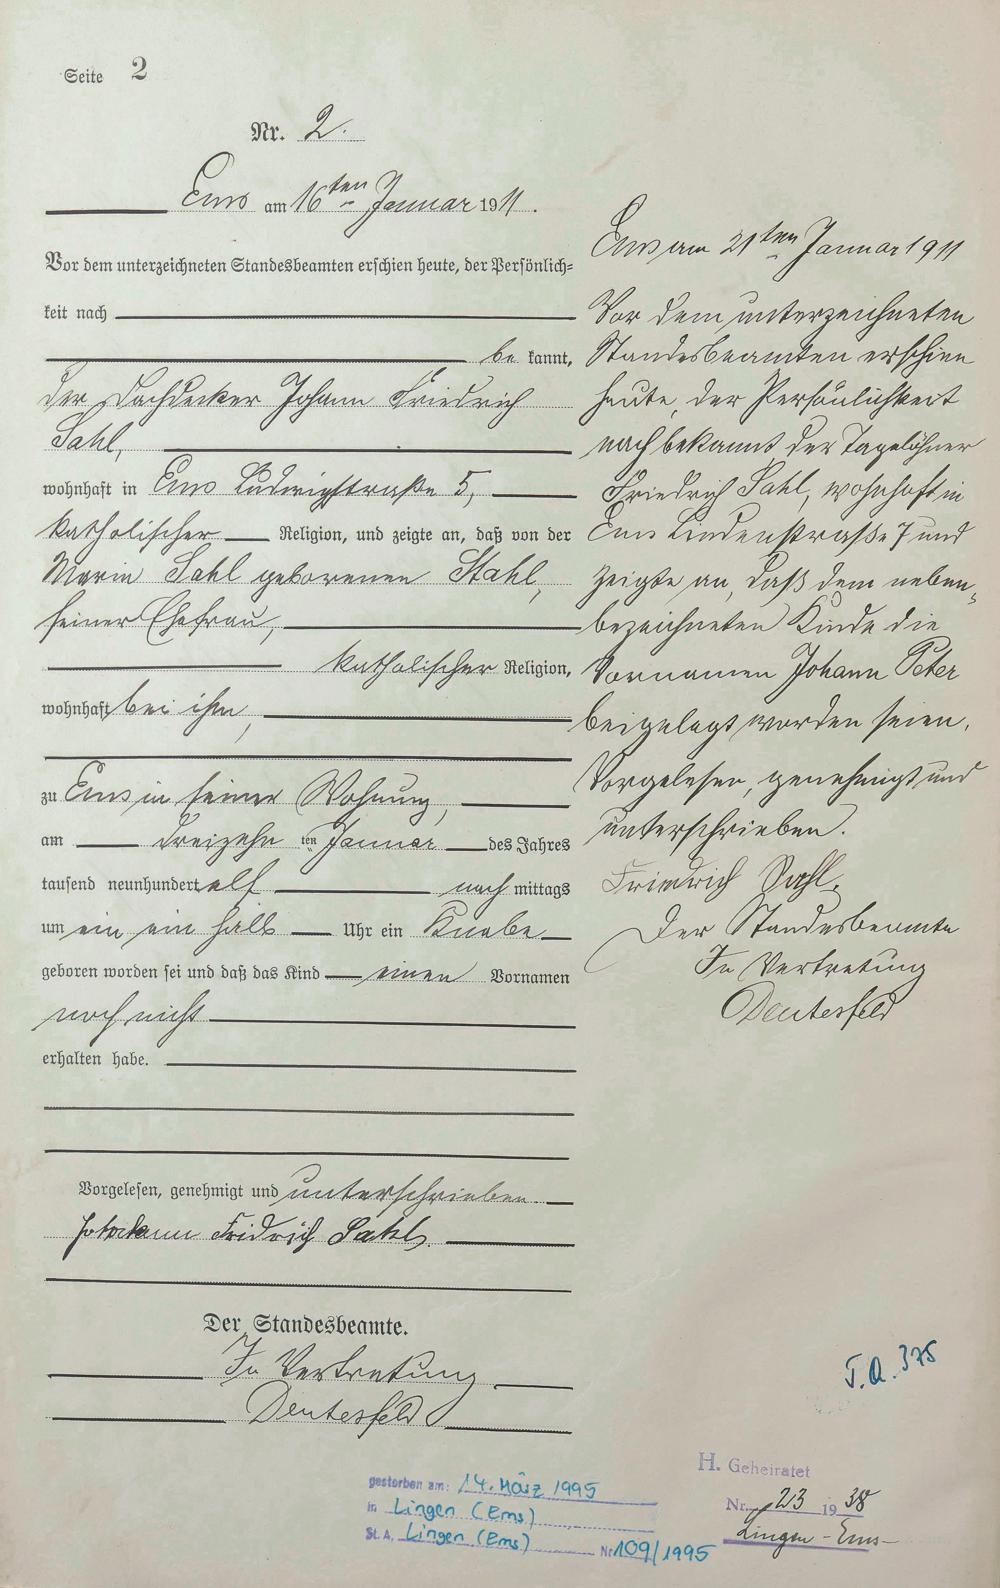 Seite 2
Nr. 2.
Ems am 16ten Januar 1911.
Vor dem unterzeichneten Standesbeamten erschien heute, der Persönlich=
keit nach
be kannt,
der Dachdecker Johann Friedrich
Sahl,
wohnhaft in Ems Ludwigstraße 5,
katholischer Religion, und zeigte an, daß von der
Maria Sahl geborenen Stahl,
seiner Ehefrau,
katholischer Religion,
wohnhaft bei ihm,
zu Ems in seiner Wohnung,
am dreizehn ten Januar des Jahres
tausend neunhundert elf nach mittags
um ein ein halb Uhr ein Knabe
geboren worden sei und daß das Kind einen Vornamen
noch nicht
erhalten habe.
Vorgelesen, genehmigt und unterschrieben
Fridrich Sahl
Der Standesbeamte.
In Vertretung
Deutesfeld
Ems am 21ten Januar 1911
Vor dem unterzeichneten
Standesbeamten erschien
heute, der Persönlichkeit
nach bekannt, der Tagelöhner
Friedrich Sahl, wohnhaft in
Ems Lindenstraße 7 und
zeigte an, daß dem neben=
bezeichneten Kinde die
Vornamen Johann Peter
beigelegt worden seien.
Vorgelesen, genehmigt und
unterschrieben.
Friedrich Sahl.
Der Standesbeamte
In Vertretung
Deutesfeld
T.A. 375
gestorben am: 14. März 1995
in Lingen (Ems)
St.A. Lingen (Ems) Nr 109/1995
H. Geheiratet
Nr. 23 1938
Lingen-Ems-